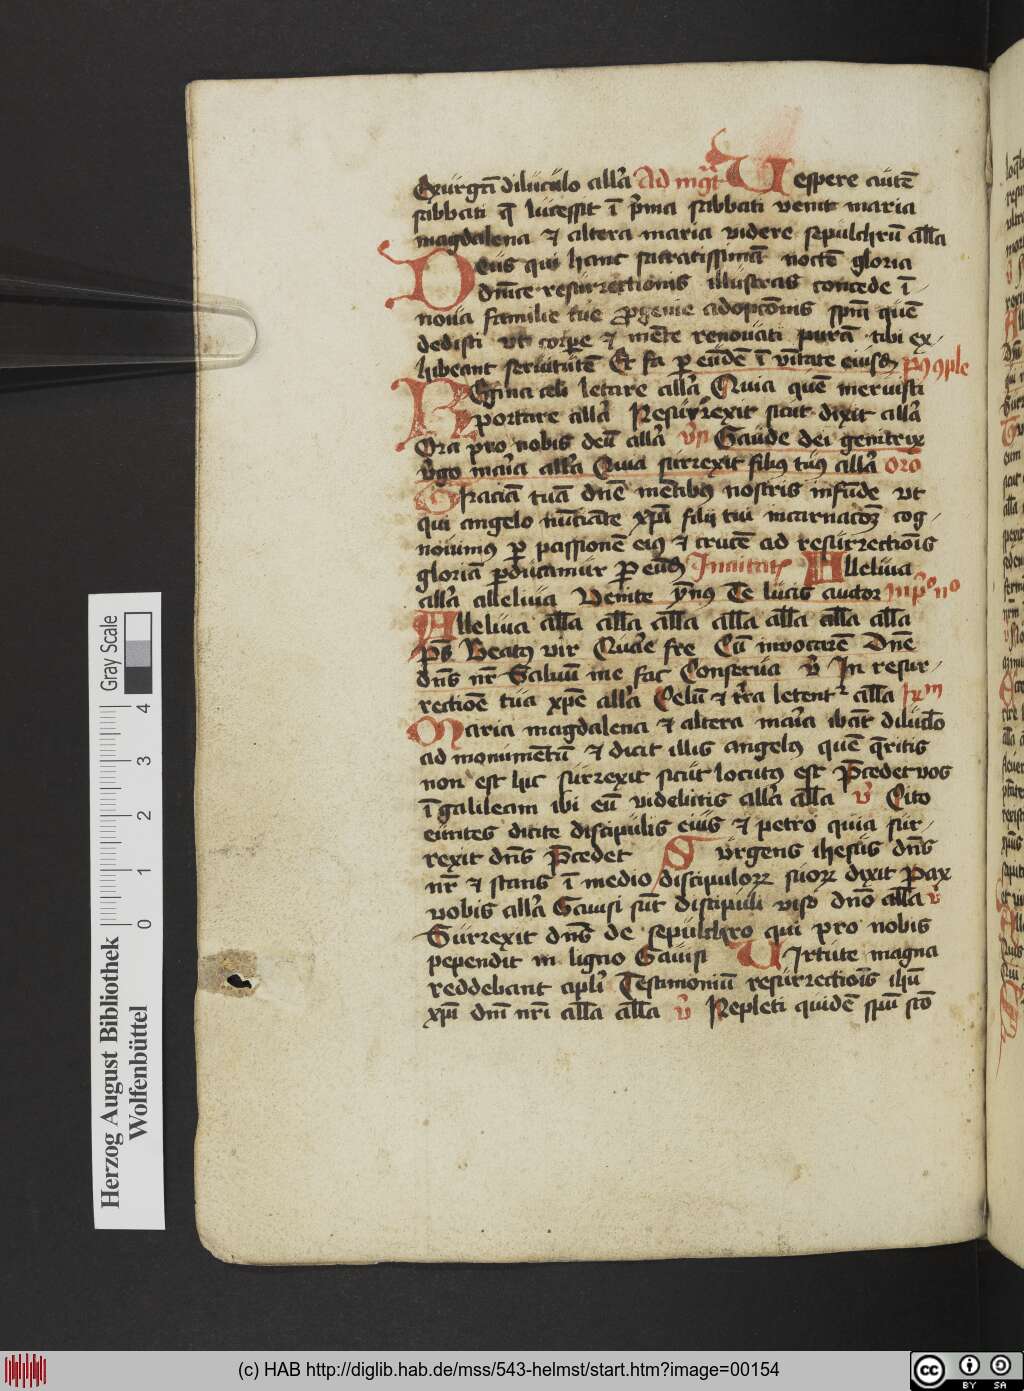 Exurgā diluculo allʼa Ad mgͣt Vespere autē
sabbati q̄ lucessit ī pʼma sabbati venit maria
magdalena ⁊ altera maria videre sepulchrū all̄a
Deus qui hanc sacratissimā noctē gloria
dn̄ice resurrectionis illustras concede ī
noua familie tue ꝓgenie adoptōnis spm̄ quē
dedisti vt corꝑe ⁊ mēte renouati purā tibi ex
hibeant seruitutē Et fa ꝑ eundē ī vnitate eiusdē
Regina celi letare allʼa Quia quē meruisti
portare allʼa Resurrexit sicut dixit allʼa
Ora pro nobis deū allʼa Gaude dei genitrix
vʼgo maʼia allʼa Quia surrexit filiꝰ tuꝰ allʼa Orō
Graciā tuā dn̄e mētibꝰ nostris infūde vt
qui angelo nūciāte xp̄i filij tui incarnacōꝫ cog
nouimꝰ ꝑ passionē eiꝰ ⁊ crucē ad resurrectiōis
gloriā ꝑducamur Ꝑ eūdē Inuitatʼ Alleluia
allʼa alleluia Venite ymꝰ Te lucis auctor In pʼo no
Alleluia all̄a all̄a all̄a all̄a all̄a all̄a all̄a
ps̄ Beatꝰ vir Quare fre Cū inuocarē Dn̄e
dn̄s nr̄ Saluū me fac Conserua v̓ In resur
rectiōe tua xp̄e allʼa Celū ⁊ tʼra letentʳ all̄a
Maria magdalena ⁊ altera maʼia ibāt diluclo
ad monumētū ⁊ dicit illis angelꝰ quē q̄ritis
non est hic surrexit sicut locutꝰ est p̄cedet vos
ī galileam ibi eū videbitis allʼa all̄a v̓ Cito
euntes dicite discipulis eius ⁊ petro quia sur
rexit dn̄s p̄cedet Surgens ihesus dn̄s
nr̄ ⁊ stans ī medio discipuloꝝ suoꝝ dixit Pax
vobis allʼa Gauisi sūt discipuli viso dn̄o all̄a v̓
Surrexit dn̄s de sepulchro qui pro nobis
pependit in ligno Gauisi Virtute magna
reddebant apl̓i Testimoniū resurrectiōis ihū
xp̄i dn̄i nr̄i all̄a all̄a v̓ Repleti quidē spū scō
Gray Scale
0 1 2 3 4
Herzog August Bibliothek
Wolfenbüttel
(c) HAB http://diglib.hab.de/mss/543-helmst/start.htm?image=00154
cc BY SA